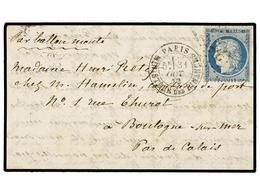 Par ballon monté
PARIS
31
OCT
Madame Henri
chez M. Hamelin, de port
N° 1 rue Thurot
à Boulogne-sur-mer
Pas de Calais